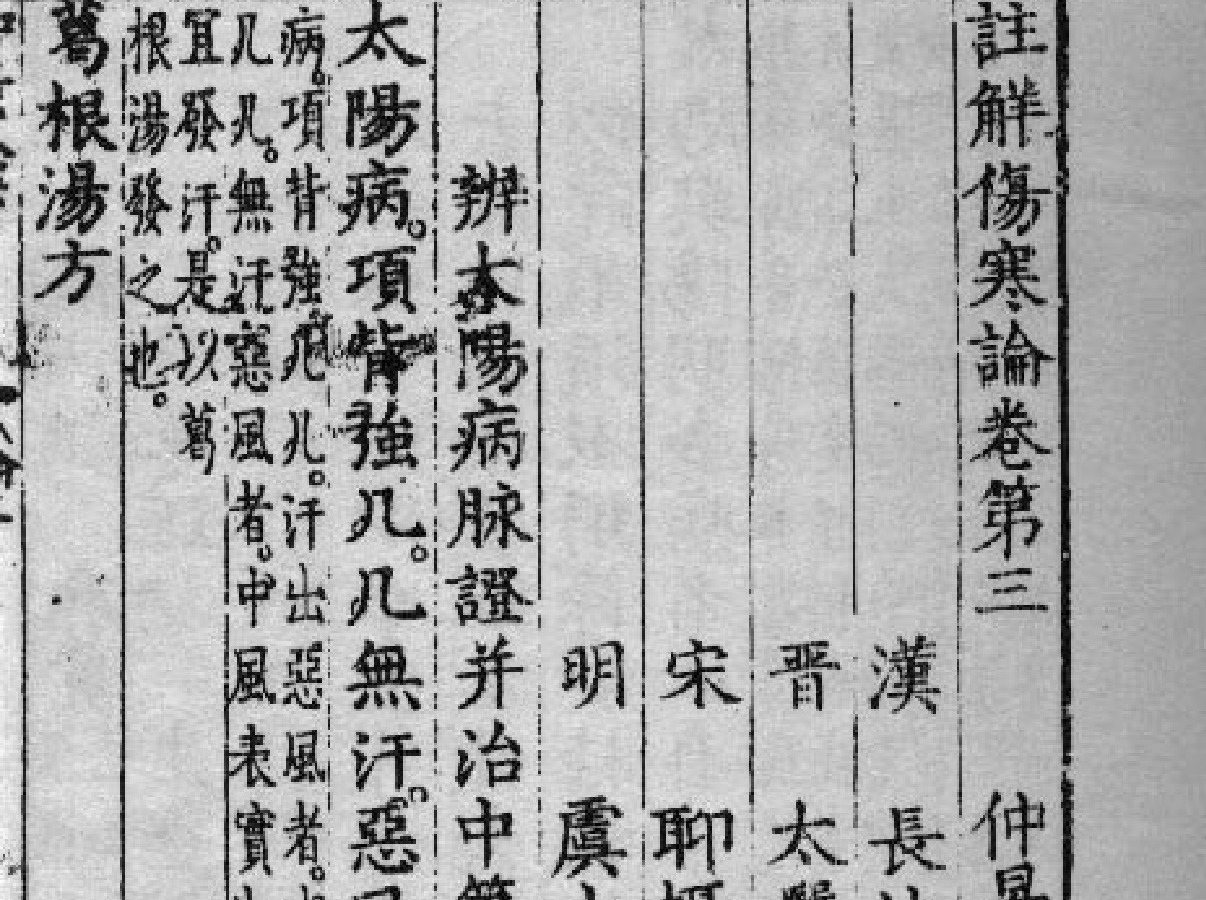 註解傷寒論卷第三 仲
漢 長
晋 太
宋 聊
明 虞
辨太陽病脉證并治中
太陽病。項背強几。几無汗。惡
病。項背強几几。汗出惡風者。
几几。無汗惡風者。中風表實
冝發汗。是以葛
根湯發之也。
葛根湯方